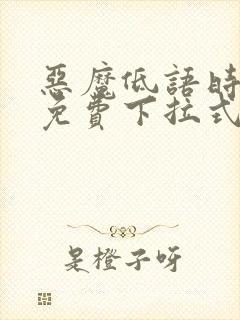 惡魔低語時
免費下拉式
是橙子呀